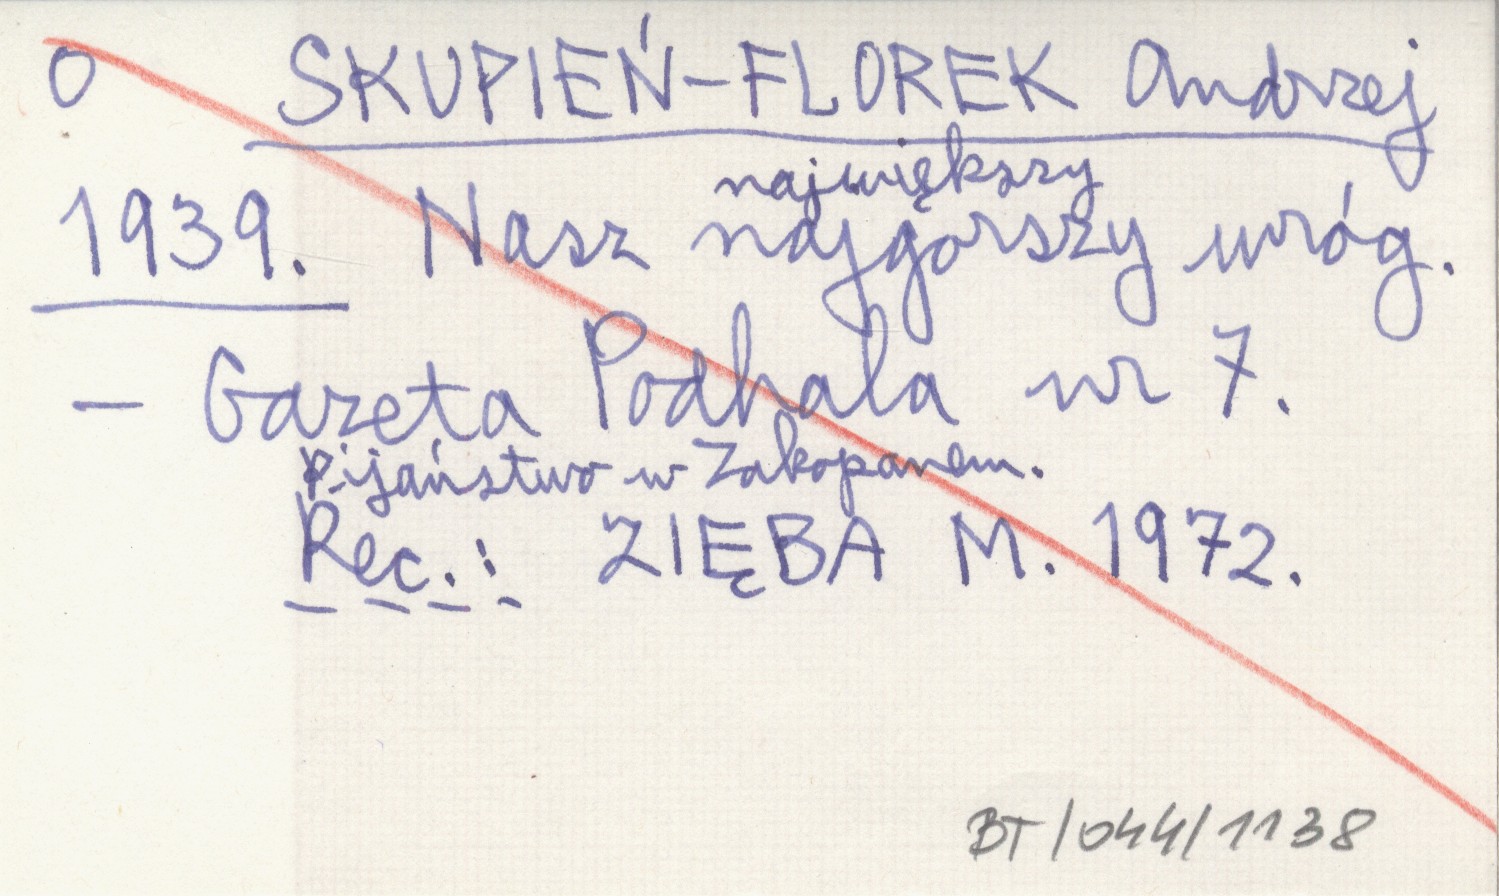 O SKUPIEŃ-FLOREK Andrzej
największy
1939. Nasz najgorszy wróg.
- Gazeta Podhala nr 7.
Pijaństwo w Zakopanem.
Rec.: ZIĘBA M. 1972.
BT/044/1138